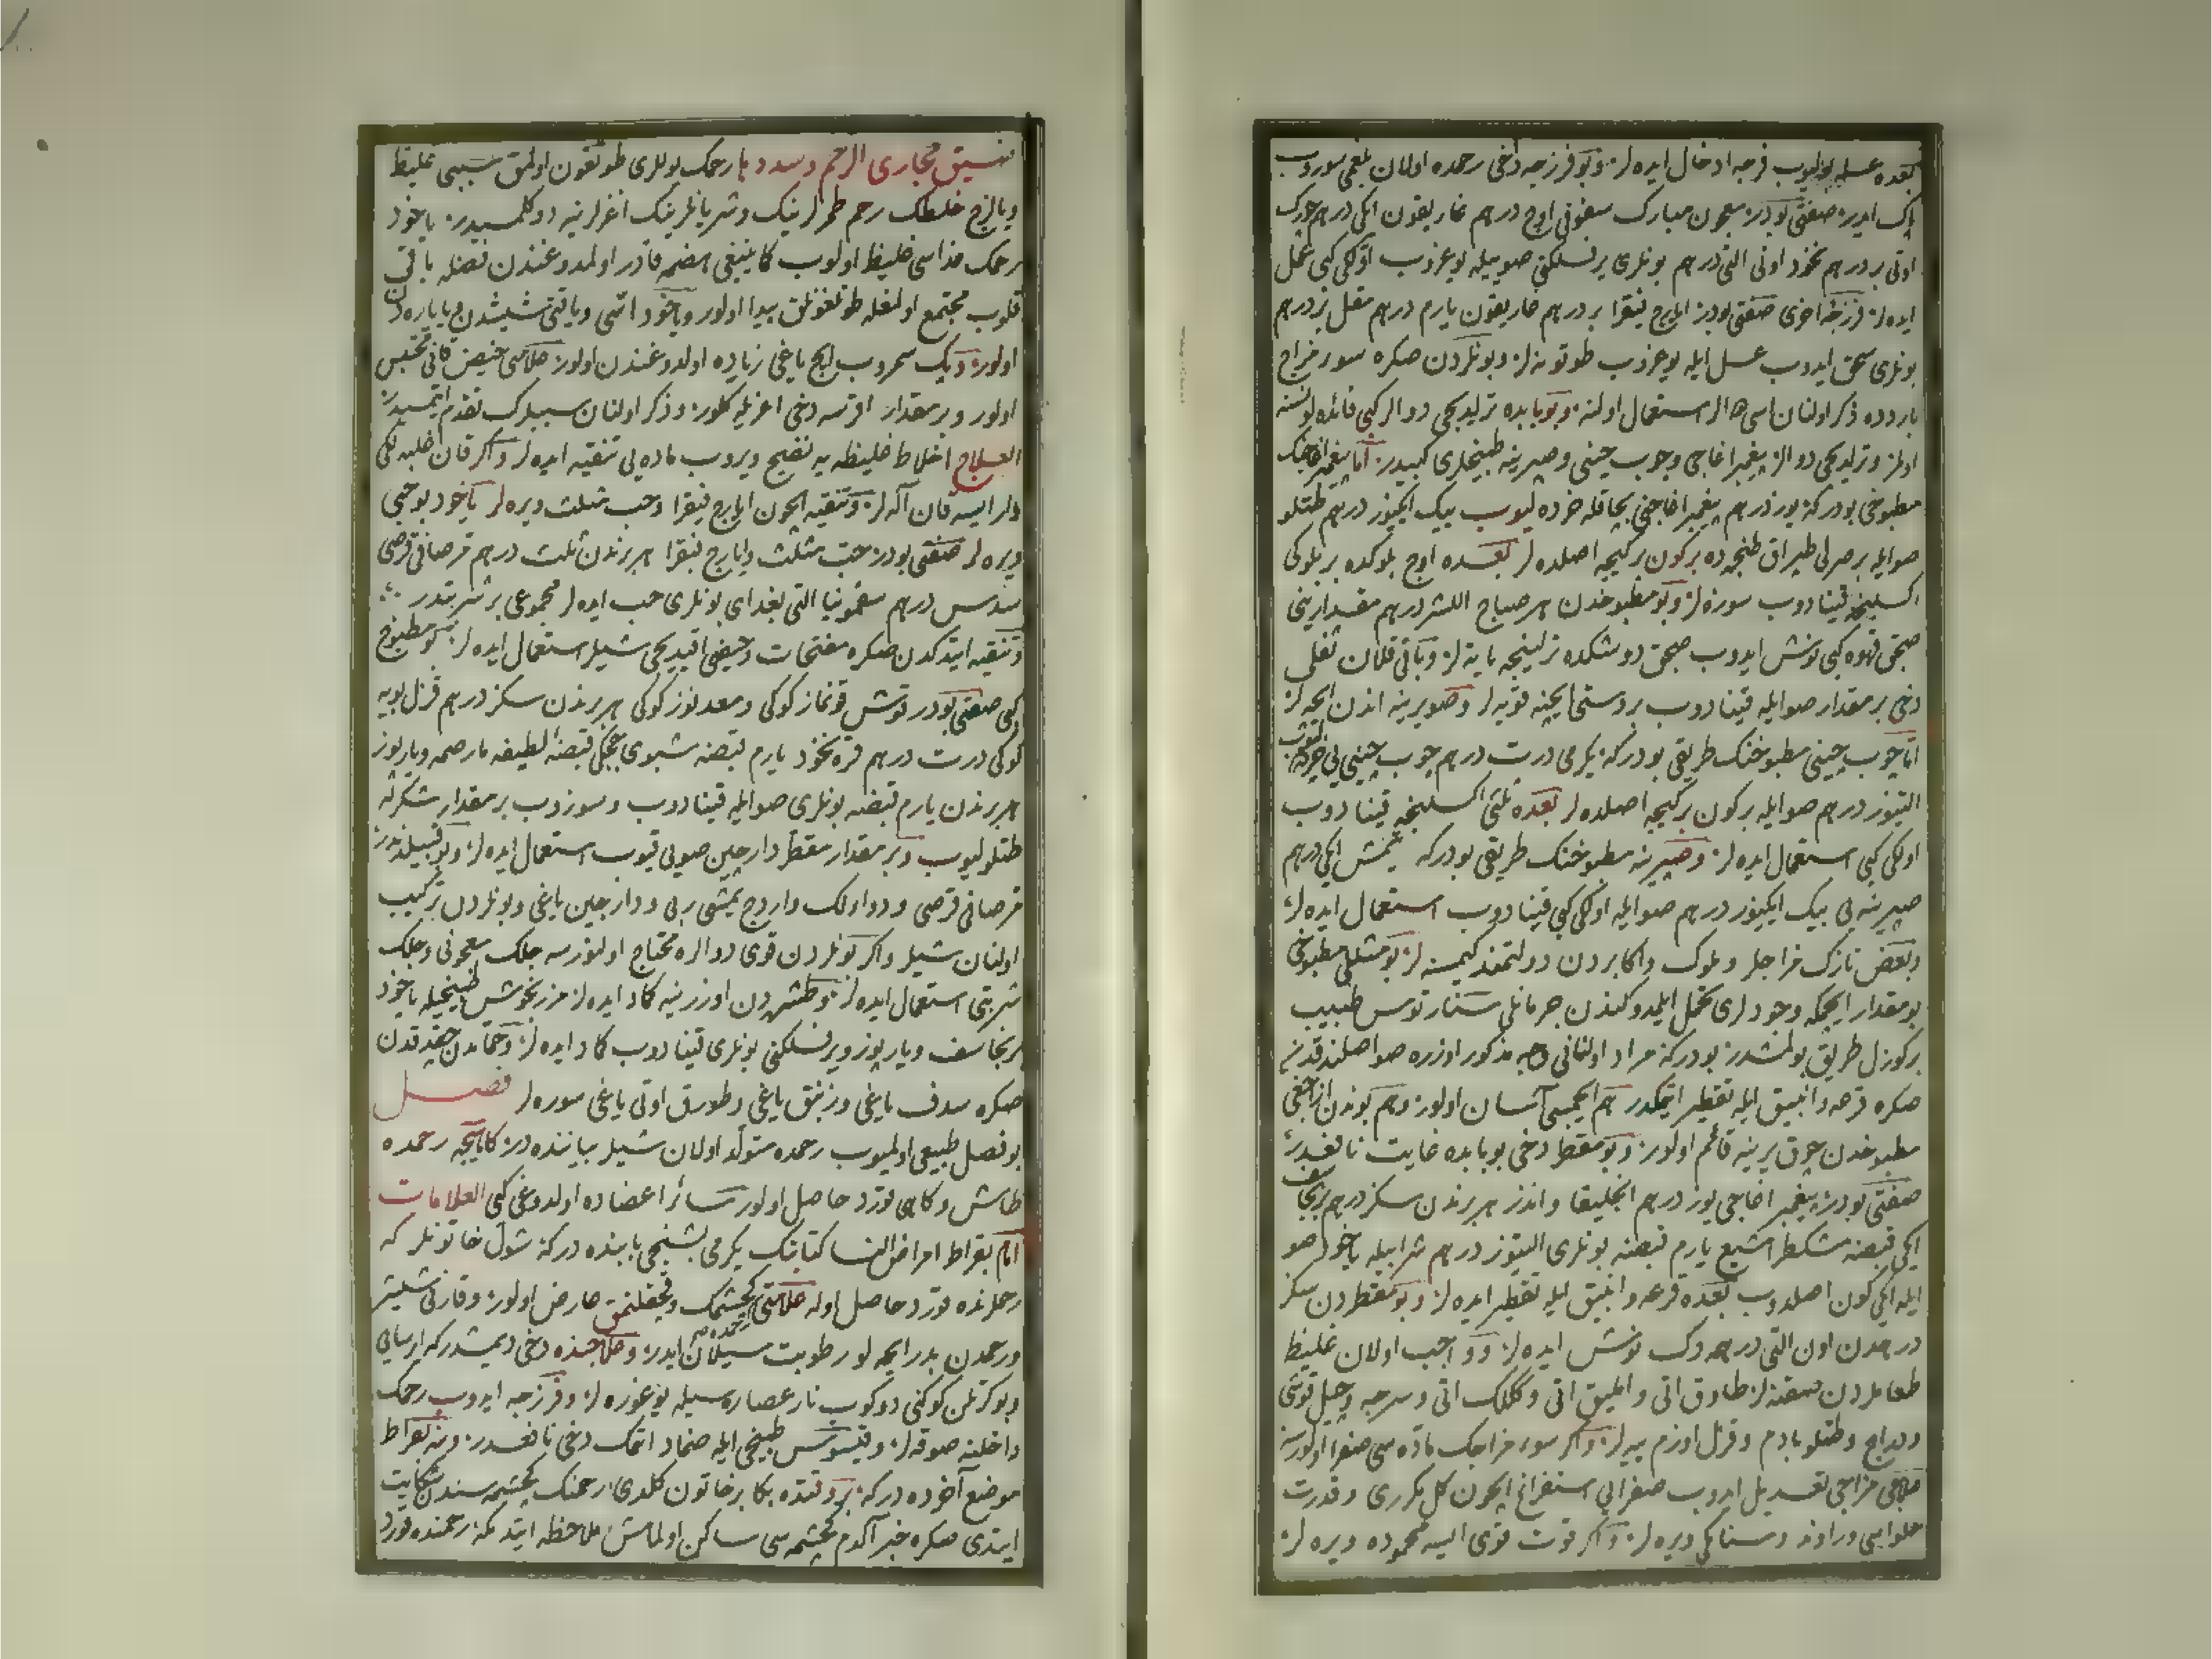 بعده عسله بولیوب فرجه ادخال ایده لر وبو فرزجه دخی رحمده اولان بلغمی سوروب
پاک ایدر صفتی بودر معجون مبارک سفوفی اوچ درهم غاریقون ایکی درهم چورک
اوتی بر درهم نخود اونی التی درهم بونلری برنسلکنی صوییله یوغروب اولکی کبی عمل
ایده لر فرزجه اخری صفتی بودر ایارج فیقرا بر درهم غاریقون یارم درهم مقل بر درهم
بونلری سحق ایدوب عسل ایله یوغروب طوتونه لر وبونلردن صکره سوء مزاج
بارده ده ذکر اولنان استعمال اولنه وبوبابده ترلدیجی دوالر کبی فائده لو نسنه
اولمز وترلدیجی دوالر پیغمبر اغاجی وچوب چینی وصپرینه طبیخلری کبیدر اما پیغمبر اغاجنک
مطبوخی بودرکه یوز درهم پیغمبر اغاجنی بچاقله خرده لیوب بیک ایکیوز درهم طتلو
صوایله بر صرلی طپراق طنجره ده بر کون بر کیجه اصلده لر بعده اوچ بلوکده بر بلوکی
اکسلنجه قینادوب سوزه لر وبو مطبوخدن هر صباح اللیشر درهم مقدارینی
صیجق قهوه کبی نوش ایدوب صیجق دوشکده ترلینجه یاته لر وباقی قلان ثفلی
دخی بر مقدار صوایله قینادوب بر دستی ایچنه قویه لر وصو یرینه اندن ایچه لر
اما چوب چینی مطبوخنک طریقی بودرکه یکرمی درت درهم چوب چینی یی خرده لیوب
التیوز درهم صوایله بر کون بر کیجه اصلده لر بعده ثلثی اکسلنجه قینادوب
اولکی کبی استعمال ایده لر وصپرینه مطبوخنک طریقی بودرکه یتمش ایکی درهم
صپرینه یی بیک ایکیوز درهم صوایله اولکی کبی قینادوب استعمال ایده لر
وبعض نازک مزاجلر وملوک واکابردن دولتمند کیمسنه لر بو مثللی مطبوخی
بو مقدار ایچمکه وجودلری تحمل ایلمدوکندن جرمانلی سنارتوس طبیب
بر کوزل طریق بولمشدر بودرکه مراد اولنانی وجه مذکور اوزره صو اصلندقدنصکره
صکره قرعه وانبیق ایله تقطیر ایتمکدر هم ایچمسی آسان اولور وهم بوندن ازاجغی
مطبوخدن چوق یرینه قائم اولور وبو مقطر دخی بوبابده غایت نافعدر
صفتی بودر پیغمبر اغاجی یوز درهم انجلیقا واندز هر برندن سکز درهم برنجاسف
ایکی قبضه مشکطرامشیع یارم قبضه بونلری التیوز درهم شرابیله یاخود صو
ایله ایکی کون اصلدوب بعده قرعه وانبیق ایله تقطیر ایده لر وبو مقطردن سکز
درهمدن اون التی درهمه دک نوش ایده لر وواجب اولان غلیظ
طعاملردن صقنه لر طاوق اتی وابلیق اتی وککلک اتی وسرچه وجیل قوشی
ودراج وطتلو بادم وقزل اوزم ییه لر واکر سوء مزاجک ماده سی صفرا اولورسه
علاجی مزاجی تعدیل ایدوب صفرایی استفراغ ایچون کل مکرری وقدرت
حلواسی وراوند وسنامکی ویره لر واکر قوت قوی ایسه محموده ویره لر
ضیق مجاری الرحم وسددها رحمک یوللری طوتقون اولمق سببی غلیظ
ویا لزج خلطک رحم طمرلرینک وشریانلرینک اغزلرینه دوکلمسیدر یاخود
رحمک غذاسی غلیظ اولوب کاینبغی هضمه قادر اولمدوغندن فضله باقی
قلوب مجتمع اولمغله طوتقونلق پیدا اولور ویاخود اتی ویا قتی شیشدن ویا یاره دن
اولور وپک سمروب ایچ یاغی زیاده اولدوغندن اولور علامتی حیض قانی محتبس
اولور وبر مقدار اقرسه دخی اغریله کلور وذکر اولنان سببلرک تقدم ایتمسیدر
العلاج اخلاط غلیظه یه نضج ویروب ماده یی تنقیه ایده لر واکر قان غلبه لکی
وار ایسه قان آله لر وتنقیه ایچون ایارج فیقرا وحب مثلث ویره لر یاخود بو حبی
ویره لر صفتی بودر حب مثلث وایارج فیقرا هر برندن ثلث درهم مرصافی قرصی
سدس درهم سقمونیا التی بغدای بونلری حب ایده لر مجموعی بر شربتدر
وتنقیه ایتدکدن صکره مفتحات وحیضی اقیدیجی شیلر استعمال ایده لر بو مطبوخ
کبی صفتی بودر قوش قونماز کوکی ومعدنوز کوکی هر برندن سکز درهم قزل بویه
کوکی درت درهم قره نخود یارم قبضه شبوی چچکی قبضه لطیفه مارصمه ویارپوز
هر برندن یارم قبضه بونلری صوایله قینادوب وسوزوب بر مقدار شکرله
طتلولیوب وبر مقدار مقطر دارچین صویی قیوب استعمال ایده لر وبو قبیلدندر
مرصافی قرصی ودواء لک وارדج یمشی ربی ودارچین یاغی وبونلردن ترکیب
اولنان شیلر واکر بونلردن قوی دوالره محتاج اولنورسه چلک معجونی وچلک
شربتی استعمال ایده لر وطشردن اوزرینه کماد ایده لر مرزنجوش طبیخیله یاخود
برنجاسف ویارپوز وبرنسلکنی بونلری قینادوب کماد ایده لر وحمامدن چقدقدن
صکره سدف یاغی وزنبق یاغی وطورق اوتی یاغی سوره لر فصل
بو فصل طبیعی اولمیوب رحمده متولد اولان شیلر بیاننده در کاهیجه رحمده
طاش وکاهی قورد حاصل اولور سائر اعضاده اولدوغی کبی العلامات
امام بقراط امراض النسا کتابنک یکرمی بشنجی بابنده درکه شول خاتونلر که
رحملرنده قورد حاصل اوله علامتی کجشمک وقجقلنمق عارض اولور وقارنی شیشر
ورحمدن بدرایحه لو رطوبت سیلان ایدر وعلاجنده دخی دیمشدرکه اوسانی
وبوکرتلن کوکنی دوکوب نار عصاره سیله یوغوره لر وفرزجه ایدوب رحمک
داخلنه صوقه لر وقیسوس طبیخی ایله ضماد اتمک دخی نافعدر وینه بقراط
موضع آخرده درکه بر وقتده بکا بر خاتون کلدی رحمنک کجشمه سندن شکایت
ایتدی صکره خبر آلدم کجشمه سی ساکن اولمامش ملاحظه ایتدمکه رحمنده قورد